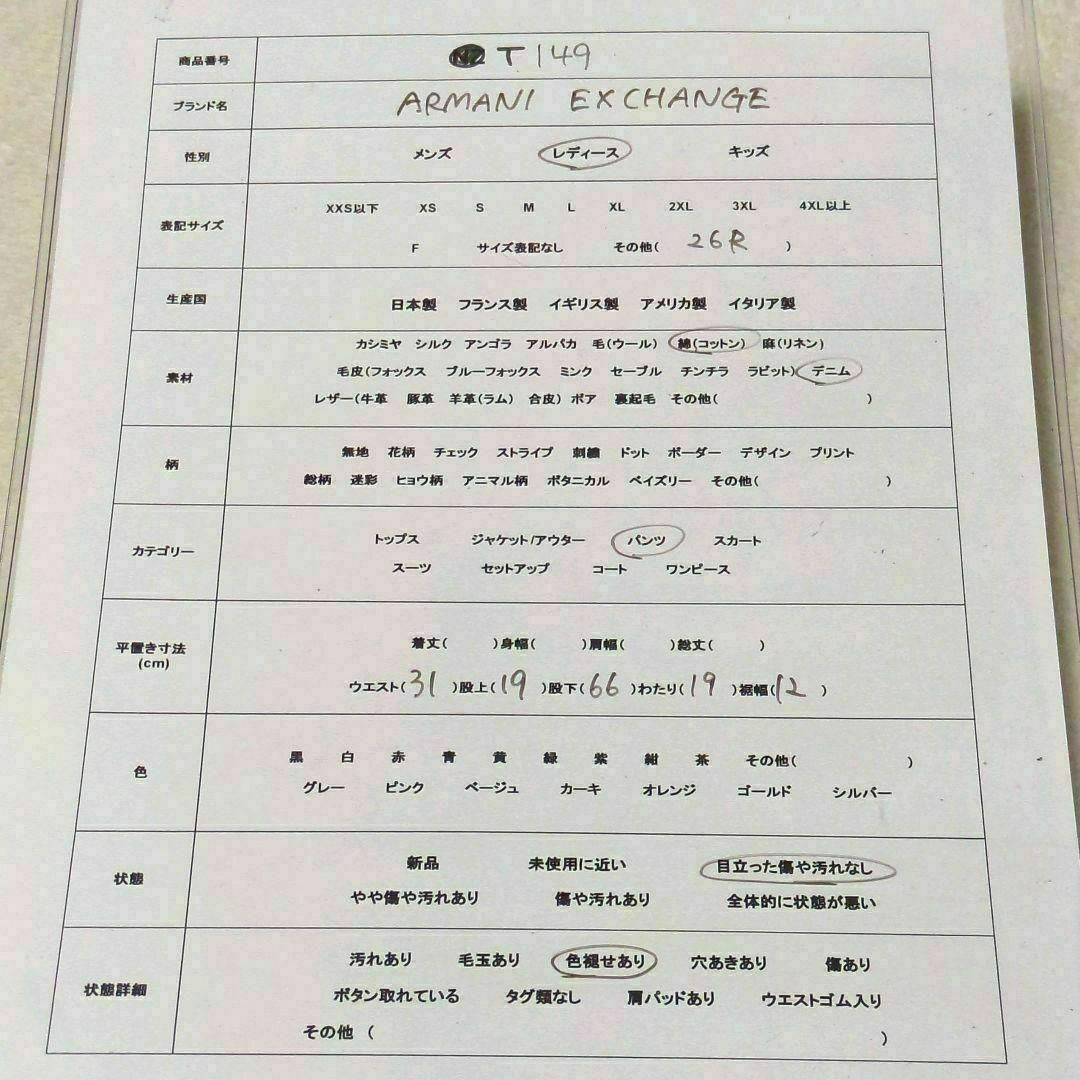 商品番号 T149
ブランド名 ARMANI EXCHANGE
性別 メンズ レディース キッズ
表記サイズ
XXS以下 XS S M L XL 2XL 3XL 4XL以上
F サイズ表記なし その他( 26R )
生産国 日本製 フランス製 イギリス製 アメリカ製 イタリア製
素材
カシミヤ シルク アンゴラ アルパカ 毛(ウール) 綿(コットン) 麻(リネン)
毛皮(フォックス ブルーフォックス ミンク セーブル チンチラ ラビット) デニム
レザー(牛革 豚革 羊革(ラム) 合皮) ボア 裏起毛 その他( )
柄
無地 花柄 チェック ストライプ 刺繍 ドット ボーダー デザイン プリント
総柄 迷彩 ヒョウ柄 アニマル柄 ボタニカル ペイズリー その他( )
カテゴリー
トップス ジャケット/アウター パンツ スカート
スーツ セットアップ コート ワンピース
平置き寸法
(cm)
着丈( )身幅( )肩幅( )総丈( )
ウエスト(31)股上(19)股下(66)わたり(19)裾幅(12)
色
黒 白 赤 青 黄 緑 紫 紺 茶 その他( )
グレー ピンク ベージュ カーキ オレンジ ゴールド シルバー
状態
新品 未使用に近い 目立った傷や汚れなし
やや傷や汚れあり 傷や汚れあり 全体的に状態が悪い
状態詳細
汚れあり 毛玉あり 色褪せあり 穴あきあり 傷あり
ボタン取れている タグ類なし 肩パッドあり ウエストゴム入り
その他 ( )